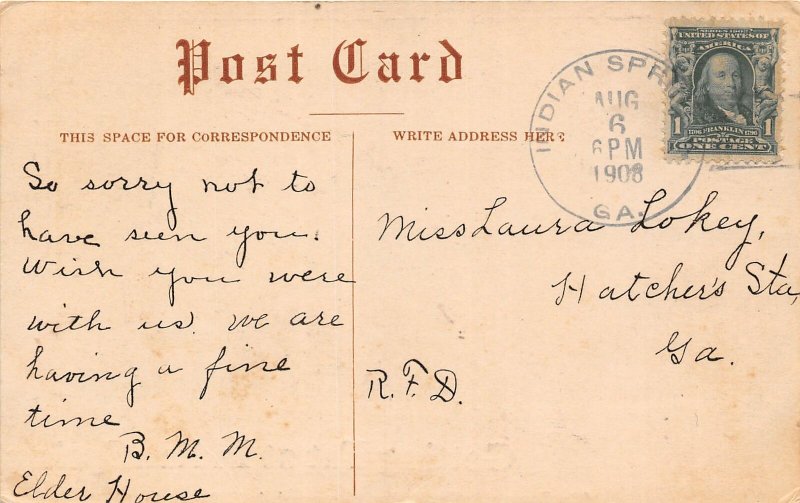 Post Card
THIS SPACE FOR CORRESPONDENCE
WRITE ADDRESS HERE
INDIAN SPR
AUG
6
6 PM
1908
GA.
SERIES 1902
UNITED STATES OF
AMERICA
1
1706 FRANKLIN 1790
1
POSTAGE
ONE CENT
So sorry not to
have seen you.
Wish you were
with us. We are
having a fine
time
B. M. M.
Elder House
Miss Laura Lokey,
Hatcher's Sta,
Ga.
R.F.D.